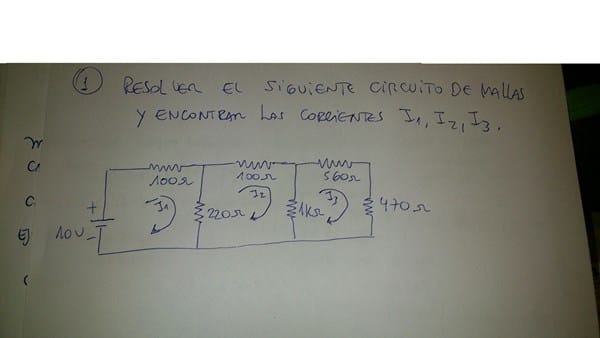 ① RESOLVER EL SIGUIENTE CIRCUITO DE MALLAS
Y ENCONTRAR LAS CORRIENTES I1, I2, I3.
100Ω 100Ω 560Ω
+ I1 220Ω I2 1KΩ I3 470Ω
10V
-